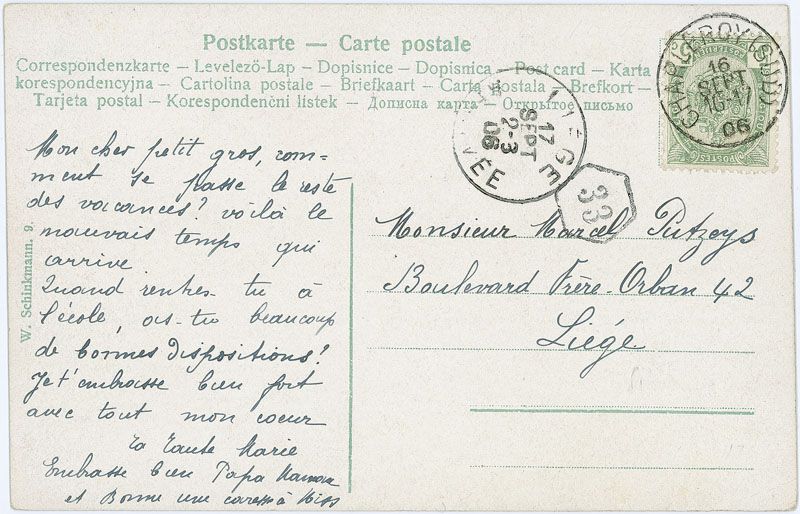 Postkarte — Carte postale
Correspondenzkarte – Levelező-Lap – Dopisnice – Dopisnica – Post card – Karta
korespondencyjna – Cartolina postale – Briefkaart – Carta postala – Brefkort –
Tarjeta postal – Korespondenční listek – Дописна карта – Открытое письмо
CHARLEROY (SUD)
16
SEPT
16-17
06
LIÈGE
17
SEPT
2-3
06
33
Mon cher petit gros, com-
ment se passe le reste
des vacances? voilà le
mauvais temps qui
arrive
Quand rentres-tu à
l'école, as-tu beaucoup
de bonnes dispositions?
Je t'embrasse bien fort
avec tout mon coeur
Ta Tante Marie
Embrasse bien Papa Maman
et Donne une caresse à Miss
Monsieur Marcel Putzeys
Boulevard Frère-Orban 42
Liége
W. Schinkmann. 9.
POSTES